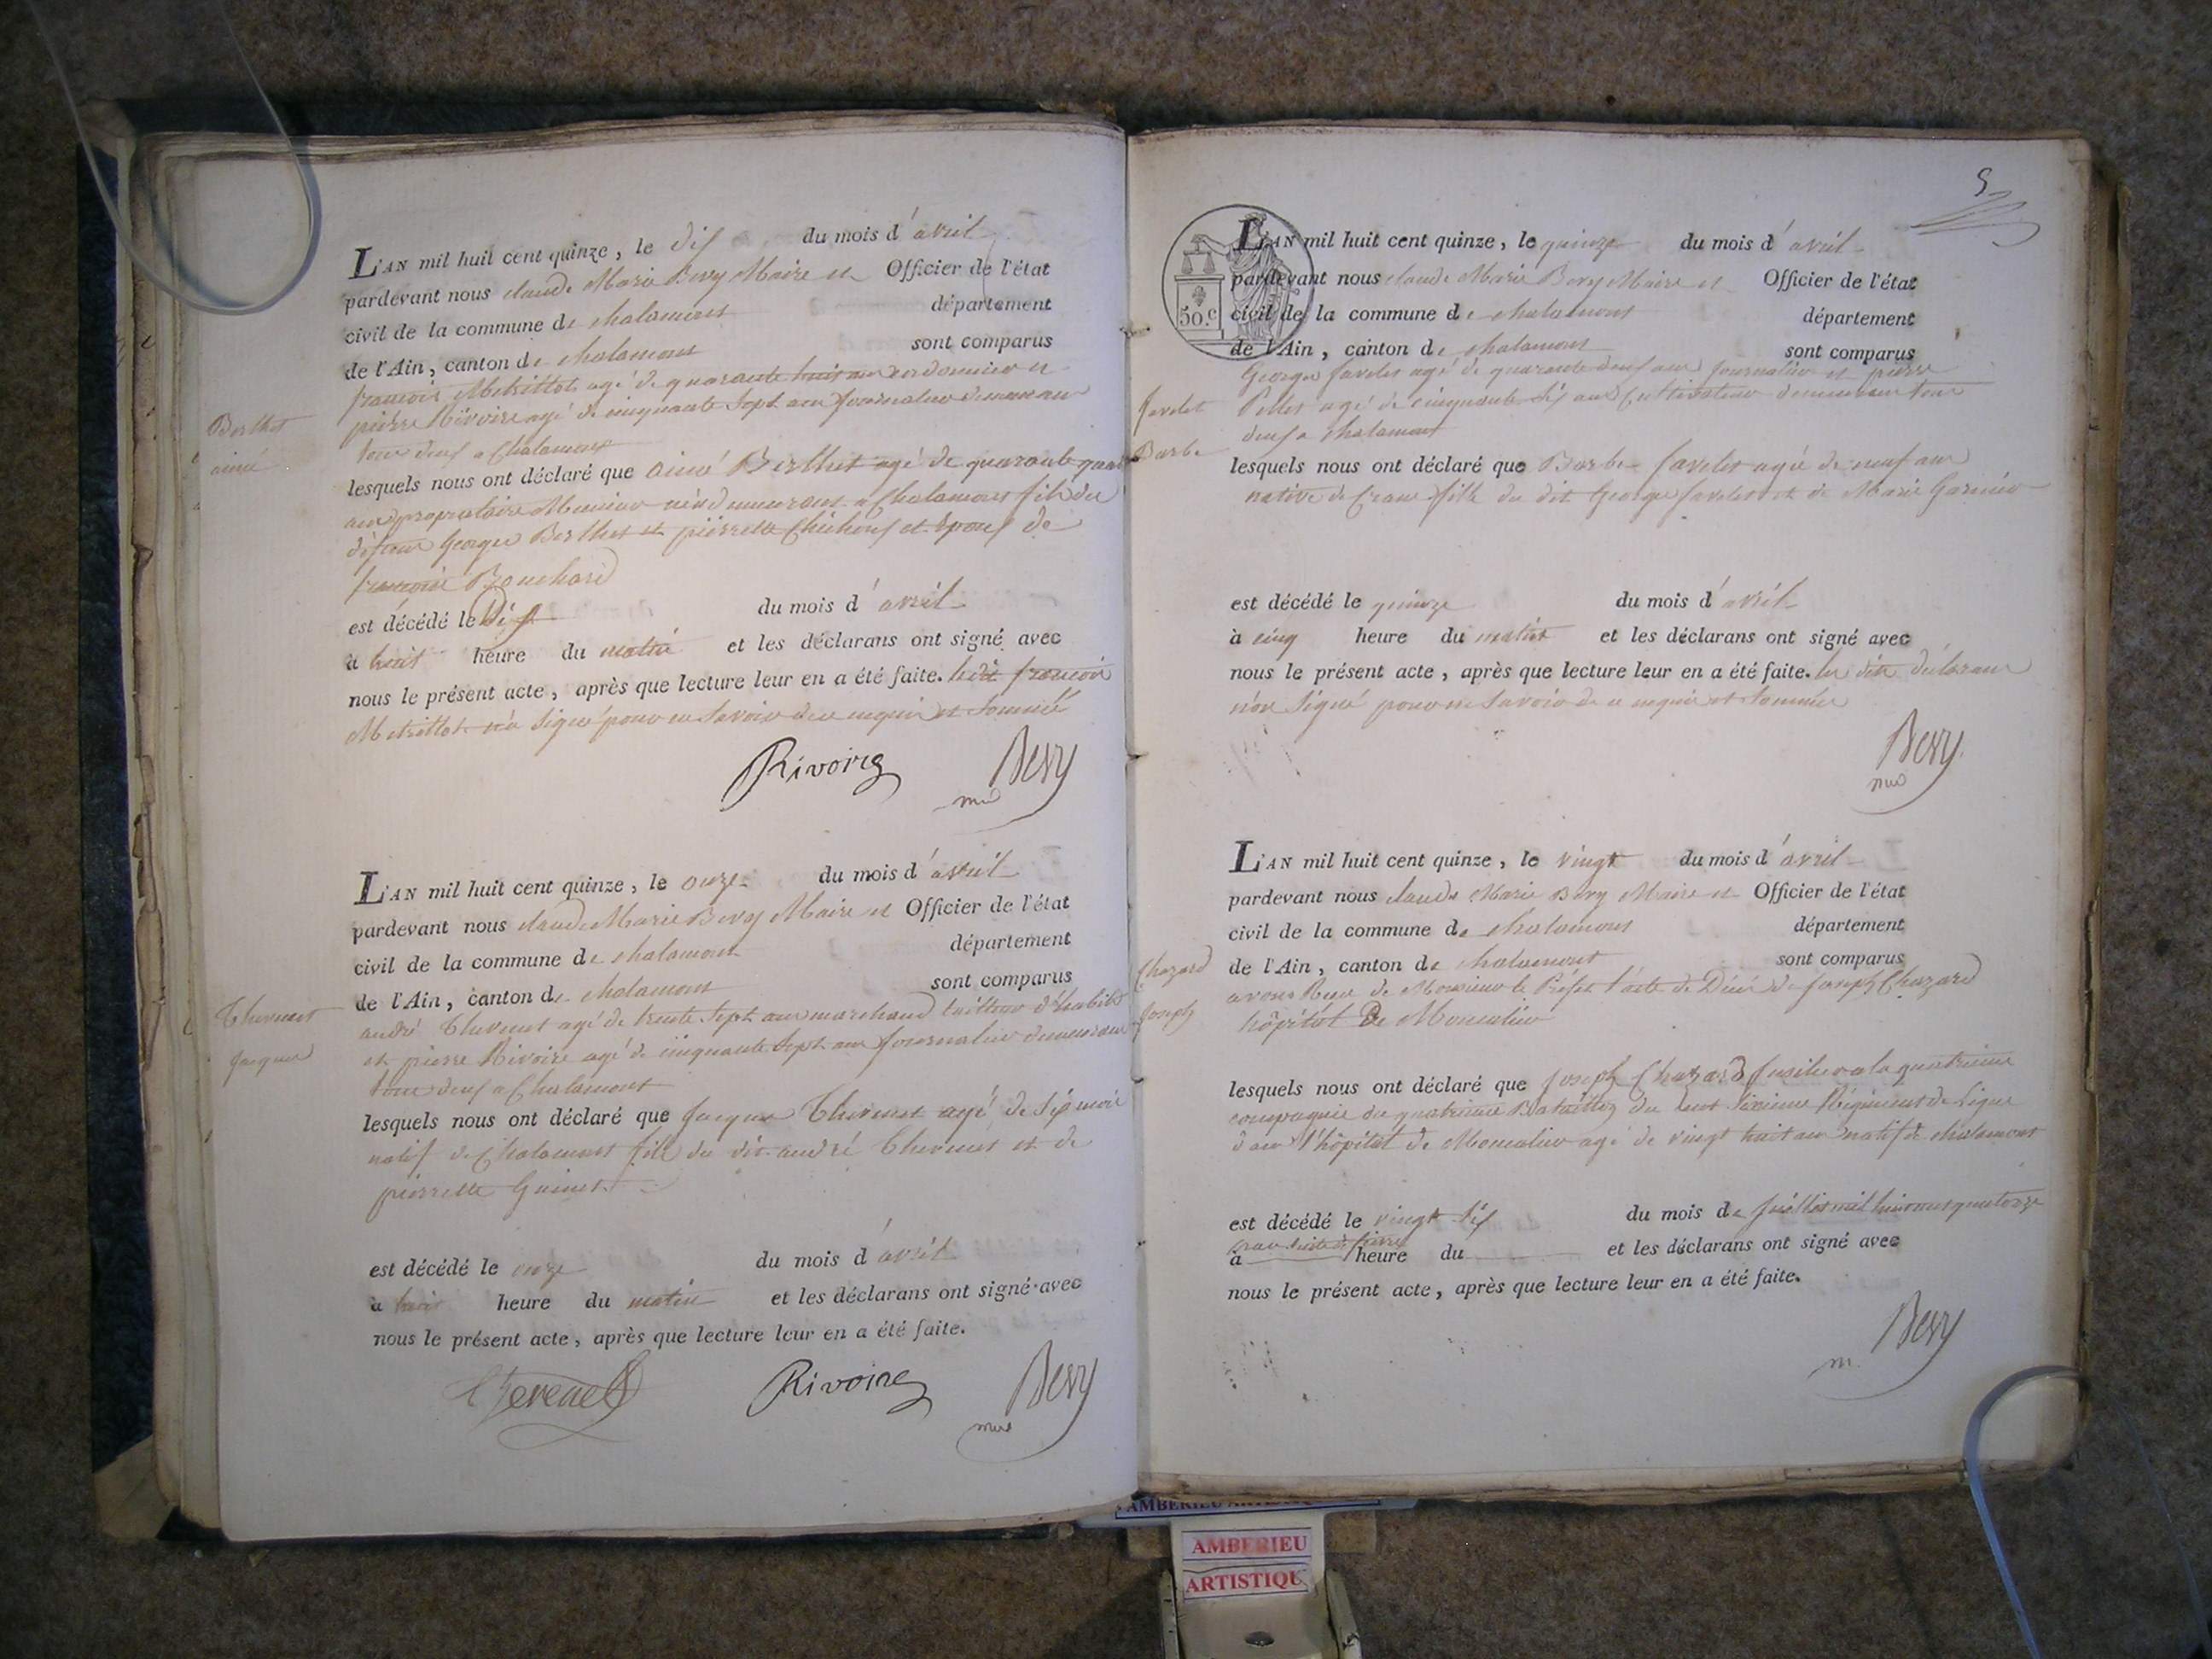 Berthet
aimé
L'AN mil huit cent quinze, le dix du mois d'avril
pardevant nous claude Marie Bevy Maire et Officier de l'état
civil de la commune de chalamont département
de l'Ain, canton de chalamont sont comparus
francois Metrillot agé de quarante huit ans cordonnier et
pierre Rivoire agé de cinquante sept ans journalier demeurant
tous deux a Chalamont
lesquels nous ont déclaré que aimé Berthet agé de quarante quatre
ans propriétaire Meunier né et demeurant a Chalamont fils du
défunt George Berthet et pierrette et Epoux de
francoise Bouchard
est décédé le dix du mois d'avril
à huit heure du matin et les déclarans ont signé avec
nous le présent acte, après que lecture leur en a été faite. ledit francois
Metrillot n'a signé pour ne savoir de ce enquis et sommé
Rivoire Bevy
mre
Thevenet
Jacques
L'AN mil huit cent quinze, le onze du mois d'avril
pardevant nous claude Marie Bevy Maire et Officier de l'état
civil de la commune de chalamont département
de l'Ain, canton de chalamont sont comparus
andré Thevenet agé de trente sept ans marchand tailleur d'habits
et pierre Rivoire agé de cinquante sept ans journalier demeurant
tous deux a Chalamont
lesquels nous ont déclaré que Jacques Thevenet agé de six mois
natif de Chalamont fils du dit andré Thevenet et de
pierrette Guinet
est décédé le onze du mois d'avril
à huit heure du matin et les déclarans ont signé avec
nous le présent acte, après que lecture leur en a été faite.
Thevenet Rivoire Bevy
mre
5
50.c
Favelet
Barbe
L'AN mil huit cent quinze, le quinze du mois d'avril
pardevant nous claude Marie Bevy Maire et Officier de l'état
civil de la commune de chalamont département
de l'Ain, canton de chalamont sont comparus
George favelet agé de quarante deux ans journalier et pierre
Pellet agé de cinquante six ans Cultivateur demeurant tous
deux a chalamont
lesquels nous ont déclaré que Barbe favelet agée de neuf ans
native de Crans fille du dit George favelet et de Marie Garnier
est décédé le quinze du mois d'avril
à cinq heure du matin et les déclarans ont signé avec
nous le présent acte, après que lecture leur en a été faite. les dits déclarans
n'ont signé pour ne savoir de ce enquis et sommés
Bevy
mre
Chazard
Joseph
L'AN mil huit cent quinze, le vingt du mois d'avril
pardevant nous claude Marie Bevy Maire et Officier de l'état
civil de la commune de chalamont département
de l'Ain, canton de chalamont sont comparus
avons Reçu de Monsieur le Préfet l'acte de Décès de Joseph Chazard
hôpital De Moncalier
lesquels nous ont déclaré que Joseph Chazard fusilier a la quatrieme
compagnie du quatrieme Bataillon du cent sixieme Régiment de Ligne
dans l'hôpital de Moncalier agé de vingt huit ans natif de chalamont
est décédé le vingt six du mois de mil huit cent quatorze
par suite de fievre
à heure du et les déclarans ont signé avec
nous le présent acte, après que lecture leur en a été faite.
Bevy
m.
AMBERIEU
ARTISTIQU